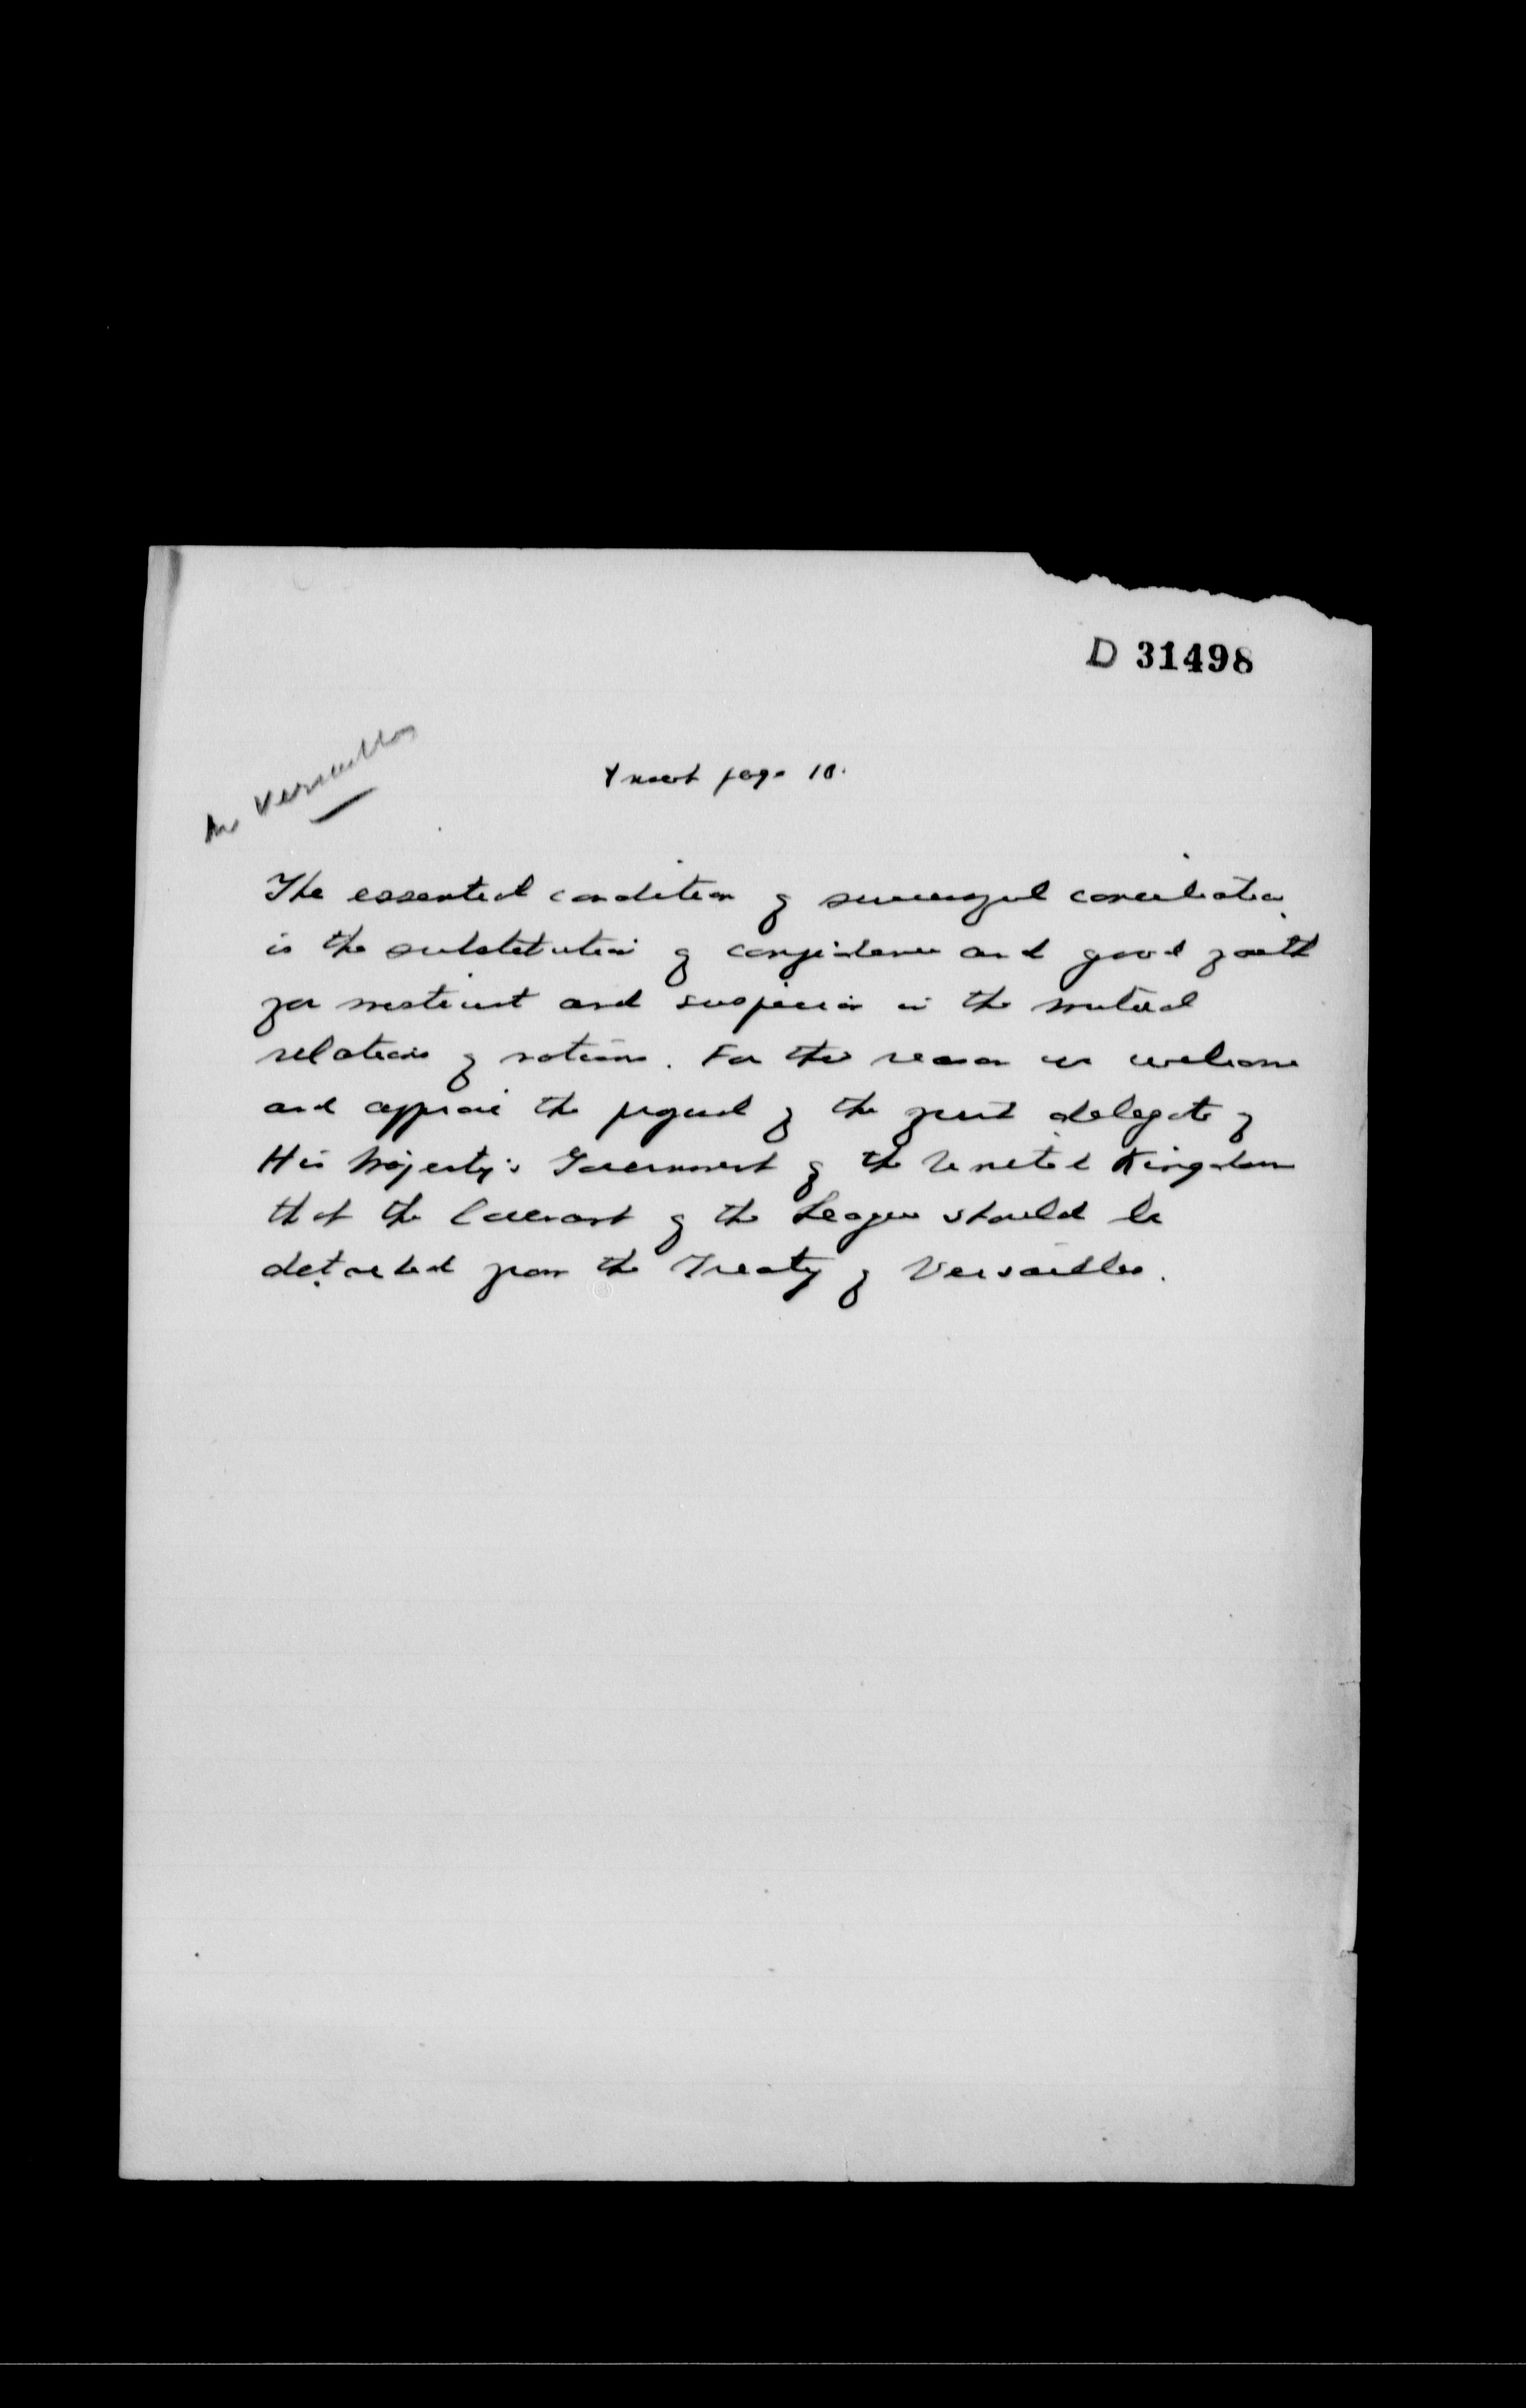 D 31498
Versailles
Insert page 10.
The essential condition of successful conciliation
is the substitution of confidence and good faith
for mistrust and suspicion in the mutual
relations of nations. For this reason we welcome
and approve the proposal of the first delegate of
His Majesty's Government of the United Kingdom
that the Covenant of the League should be
detached from the Treaty of Versailles.